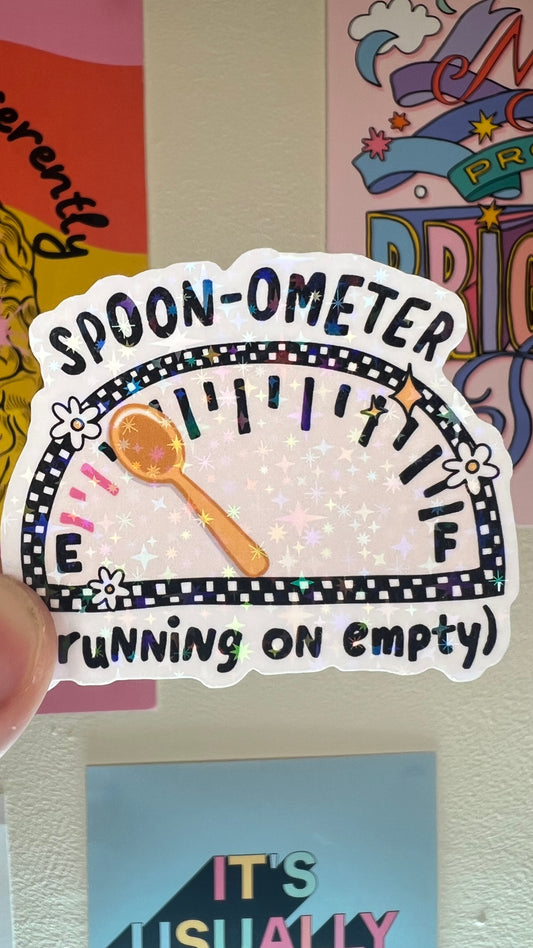 erently
PRO
SPOON-OMETER
E
F
running on empty)
IT'S
USUALLY